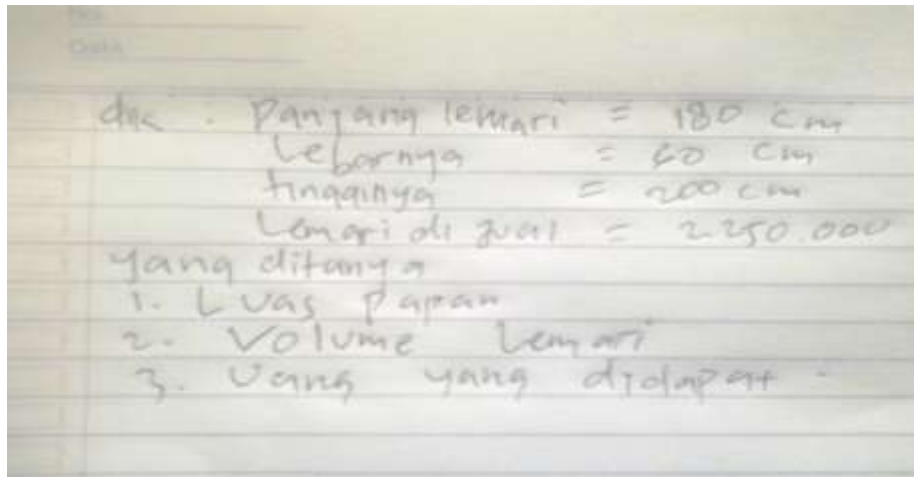 No.
Date
dik. Panjang lemari = 180 cm
Lebarnya = 60 cm
tingginya = 200 cm
Lemari di jual = 2.250.000
yang ditanya
1. Luas Papan
2. Volume Lemari
3. Uang yang didapat.